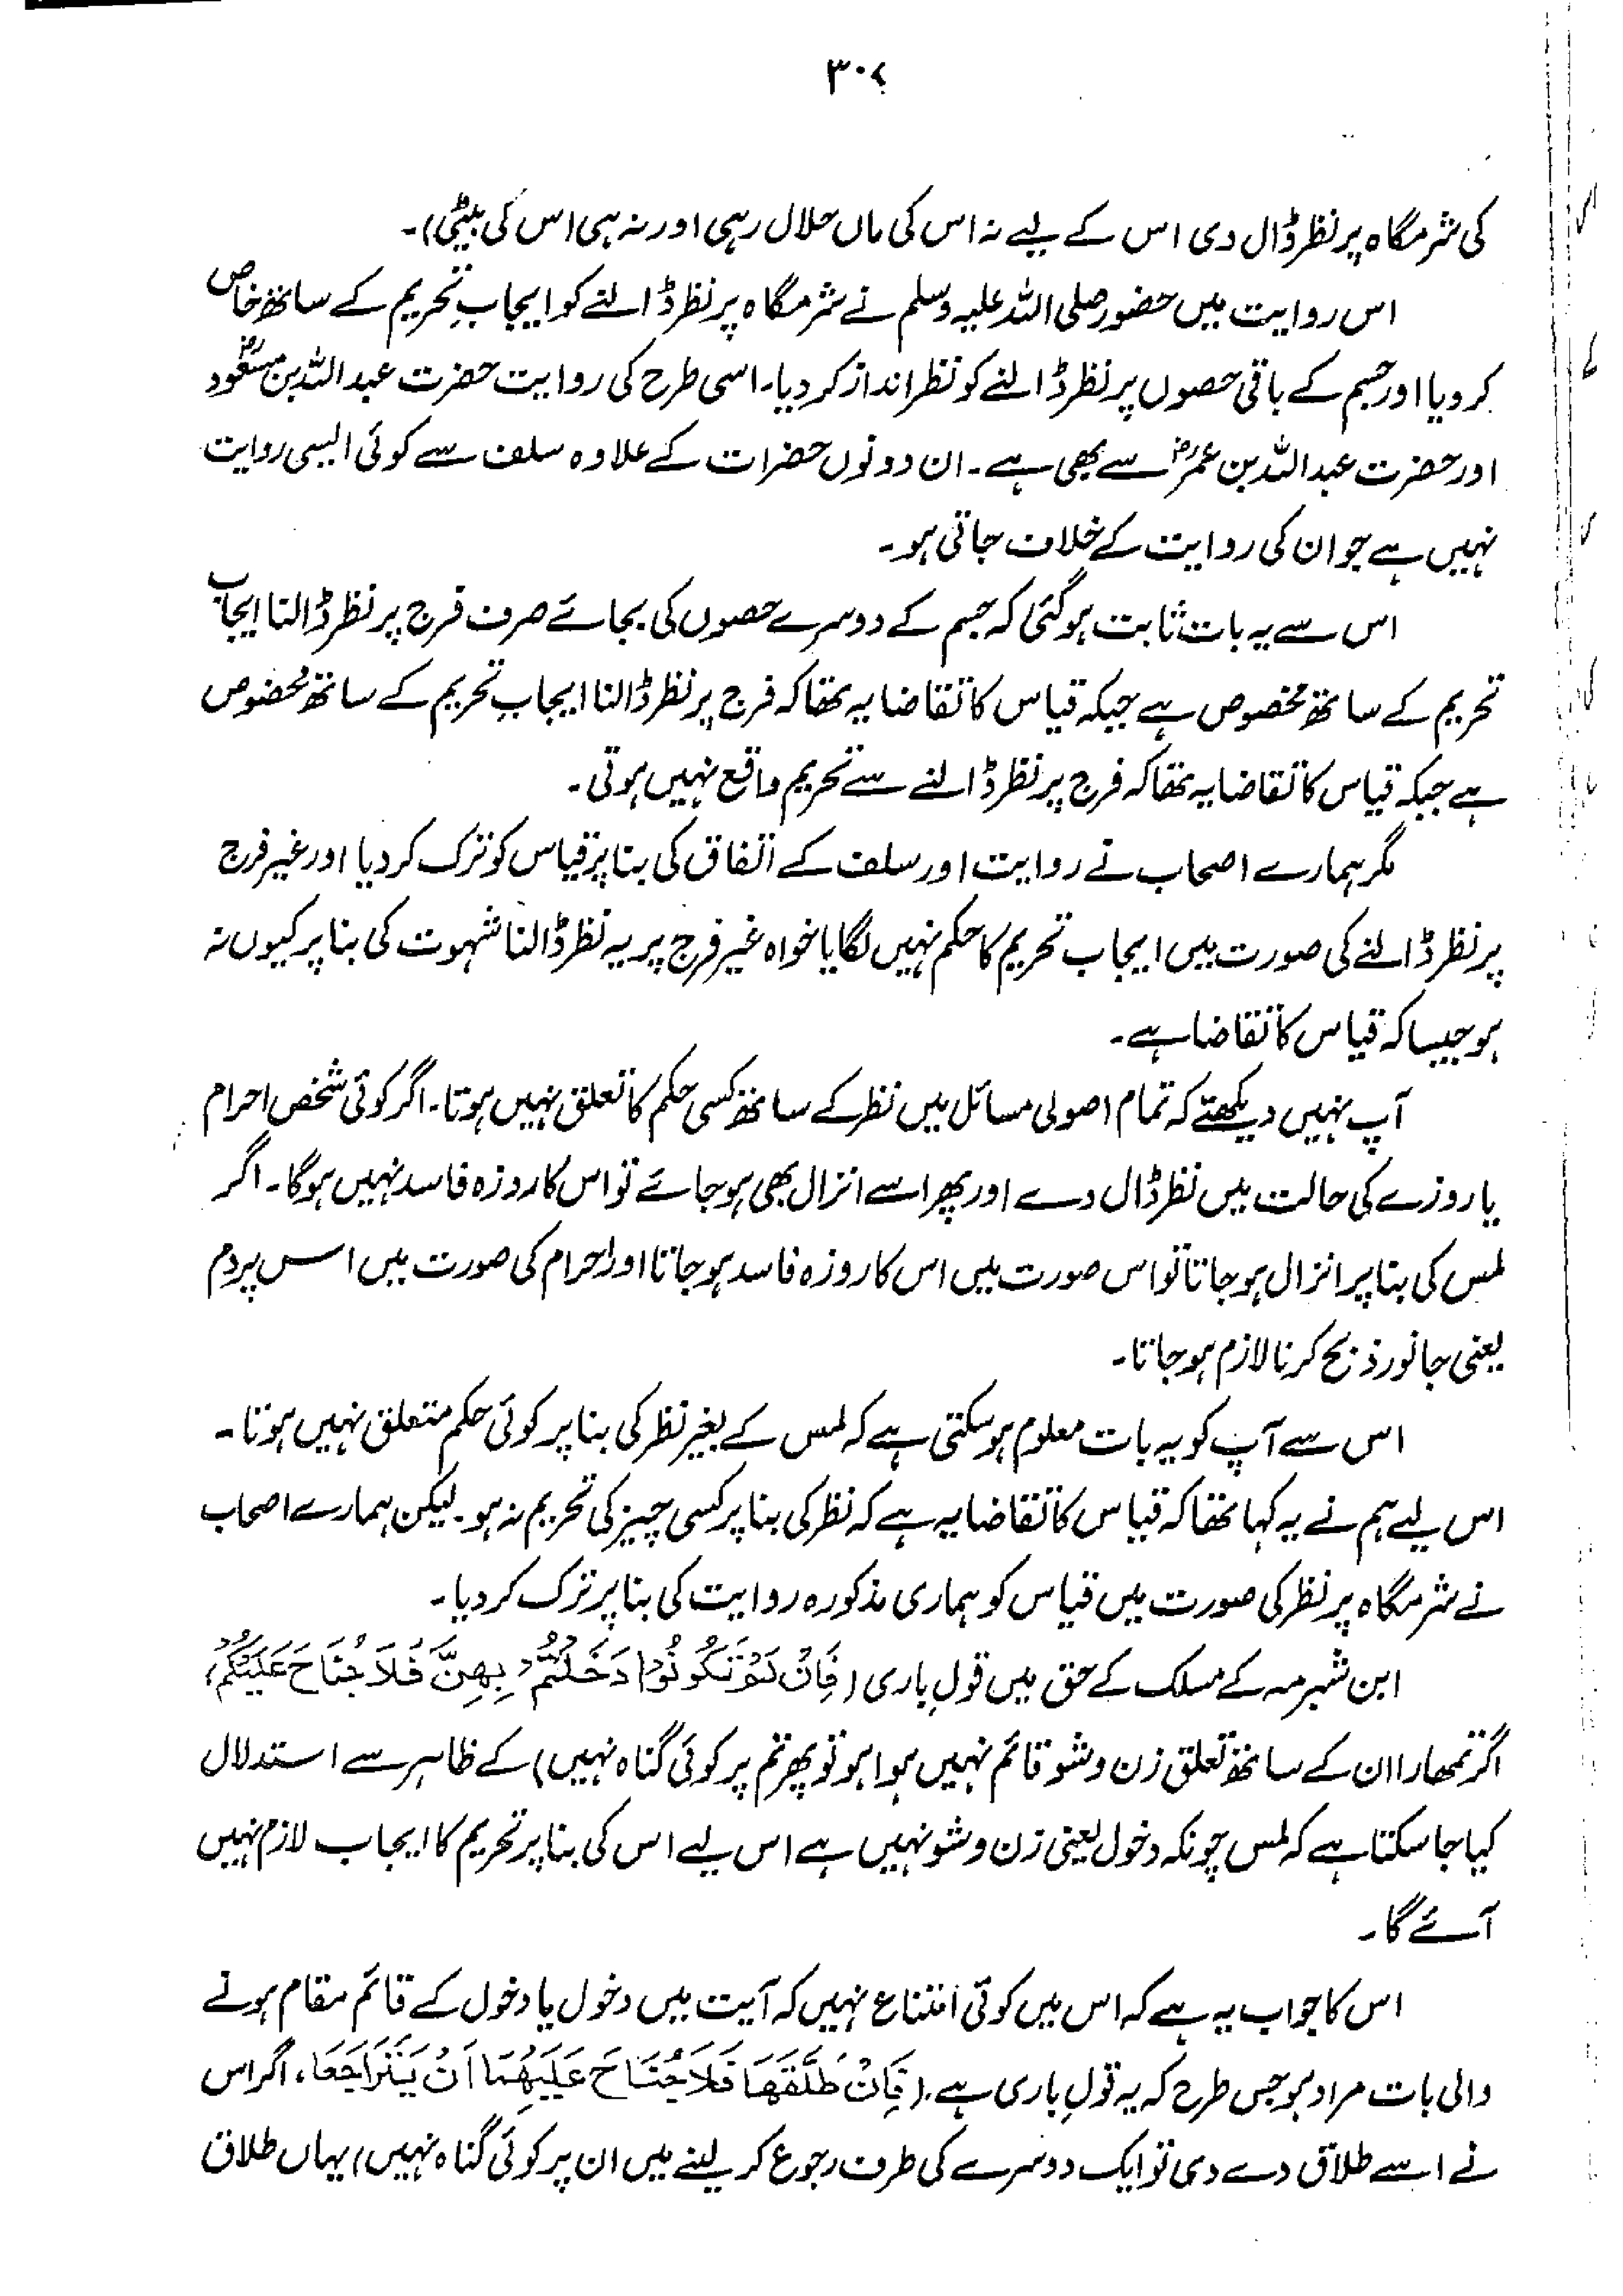 ۳۰۷
کی شرمگاہ پر نظر ڈال دی اس کے لیے نہ اس کی ماں حلال رہی اور نہ ہی اس کی بیٹی)۔
اس روایت میں حضور صلی اللہ علیہ وسلم نے شرمگاہ پر نظر ڈالنے کو ایجابِ تحریم کے ساتھ خاص
کر دیا اور جسم کے باقی حصوں پر نظر ڈالنے کو نظر انداز کر دیا۔ اسی طرح کی روایت حضرت عبداللہ بن مسعودؓ
اور حضرت عبداللہ بن عمرؓ سے بھی ہے۔ ان دونوں حضرات کے علاوہ سلف سے کوئی ایسی روایت
نہیں ہے جو ان کی روایت کے خلاف جاتی ہو۔
اس سے یہ بات ثابت ہوگئی کہ جسم کے دوسرے حصوں کی بجائے صرف فرج پر نظر ڈالنا ایجاب
تحریم کے ساتھ مخصوص ہے جبکہ قیاس کا تقاضا یہ تھا کہ فرج پر نظر ڈالنا ایجابِ تحریم کے ساتھ مخصوص
ہے جبکہ قیاس کا تقاضا یہ تھا کہ فرج پر نظر ڈالنے سے تحریم واقع نہیں ہوتی۔
مگر ہمارے اصحاب نے روایت اور سلف کے اتفاق کی بنا پر قیاس کو ترک کر دیا اور غیر فرج
پر نظر ڈالنے کی صورت میں ایجاب تحریم کا حکم نہیں لگایا خواہ غیر فرج پر یہ نظر ڈالنا شہوت کی بنا پر کیوں نہ
ہو جیسا کہ قیاس کا تقاضا ہے۔
آپ نہیں دیکھتے کہ تمام اصولی مسائل میں نظر کے ساتھ کسی حکم کا تعلق نہیں ہوتا۔ اگر کوئی شخص احرام
یا روزے کی حالت میں نظر ڈال دے اور پھر اسے انزال بھی ہو جائے تو اس کا روزہ فاسد نہیں ہوگا۔ اگر
لمس کی بنا پر انزال ہو جاتا تو اس صورت میں اس کا روزہ فاسد ہو جاتا اور احرام کی صورت میں اس پر دم
یعنی جانور ذبح کرنا لازم ہو جاتا۔
اس سے آپ کو یہ بات معلوم ہو سکتی ہے کہ لمس کے بغیر نظر کی بنا پر کوئی حکم متعلق نہیں ہوتا۔
اس لیے ہم نے یہ کہا تھا کہ قیاس کا تقاضا یہ ہے کہ نظر کی بنا پر کسی چیز کی تحریم نہ ہو۔ لیکن ہمارے اصحاب
نے شرمگاہ پر نظر کی صورت میں قیاس کو ہماری مذکورہ روایت کی بنا پر ترک کر دیا۔
ابن شبرمہ کے مسلک کے حق میں قولِ باری (فَاِنْ لَمْ تَكُونُوْا دَخَلْتُمْ بِهِنَّ فَلَا جُنَاحَ عَلَيْكُمْ،
اگر تمھارا ان کے ساتھ تعلق زن و شو قائم نہیں ہوا ہو تو پھر تم پر کوئی گناہ نہیں) کے ظاہر سے استدلال
کیا جا سکتا ہے کہ لمس چونکہ دخول یعنی زن و شو نہیں ہے اس لیے اس کی بنا پر تحریم کا ایجاب لازم نہیں
آئے گا۔
اس کا جواب یہ ہے کہ اس میں کوئی امتناع نہیں کہ آیت میں دخول یا دخول کے قائم مقام ہونے
والی بات مراد ہو جس طرح کہ یہ قولِ باری ہے (فَاِنْ طَلَّقَهَا فَلَا جُنَاحَ عَلَيْهِمَا اَنْ يَتَرَاجَعَا، اگر اس
نے اسے طلاق دے دی تو ایک دوسرے کی طرف رجوع کر لینے میں ان پر کوئی گناہ نہیں) یہاں طلاق